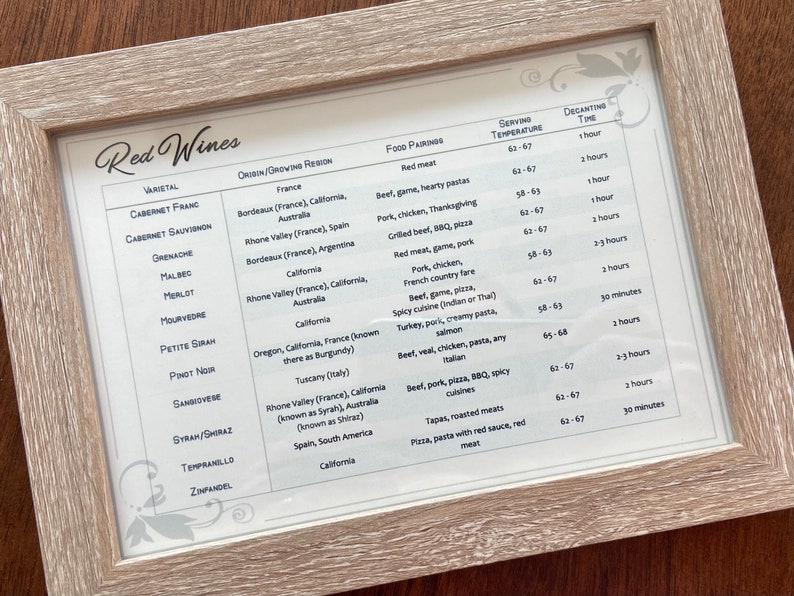 Red Wines
Varietal Origin/Growing Region Food Pairings Serving Temperature Decanting Time
Cabernet Franc France Red meat 62 - 67 1 hour
Cabernet Sauvignon Bordeaux (France), California, Australia Beef, game, hearty pastas 62 - 67 2 hours
Grenache Rhone Valley (France), Spain Pork, chicken, Thanksgiving 58 - 63 1 hour
Malbec Bordeaux (France), Argentina Grilled beef, BBQ, pizza 62 - 67 1 hour
Merlot California Red meat, game, pork 62 - 67 2 hours
Mourvedre Rhone Valley (France), California, Australia Pork, chicken, French country fare 58 - 63 2-3 hours
Petite Sirah California Beef, game, pizza, Spicy cuisine (Indian or Thai) 62 - 67 2 hours
Pinot Noir Oregon, California, France (known there as Burgundy) Turkey, pork, creamy pasta, salmon 58 - 63 30 minutes
Sangiovese Tuscany (Italy) Beef, veal, chicken, pasta, any Italian 65 - 68 2 hours
Syrah/Shiraz Rhone Valley (France), California (known as Syrah), Australia (known as Shiraz) Beef, pork, pizza, BBQ, spicy cuisines 62 - 67 2-3 hours
Tempranillo Spain, South America Tapas, roasted meats 62 - 67 2 hours
Zinfandel California Pizza, pasta with red sauce, red meat 62 - 67 30 minutes